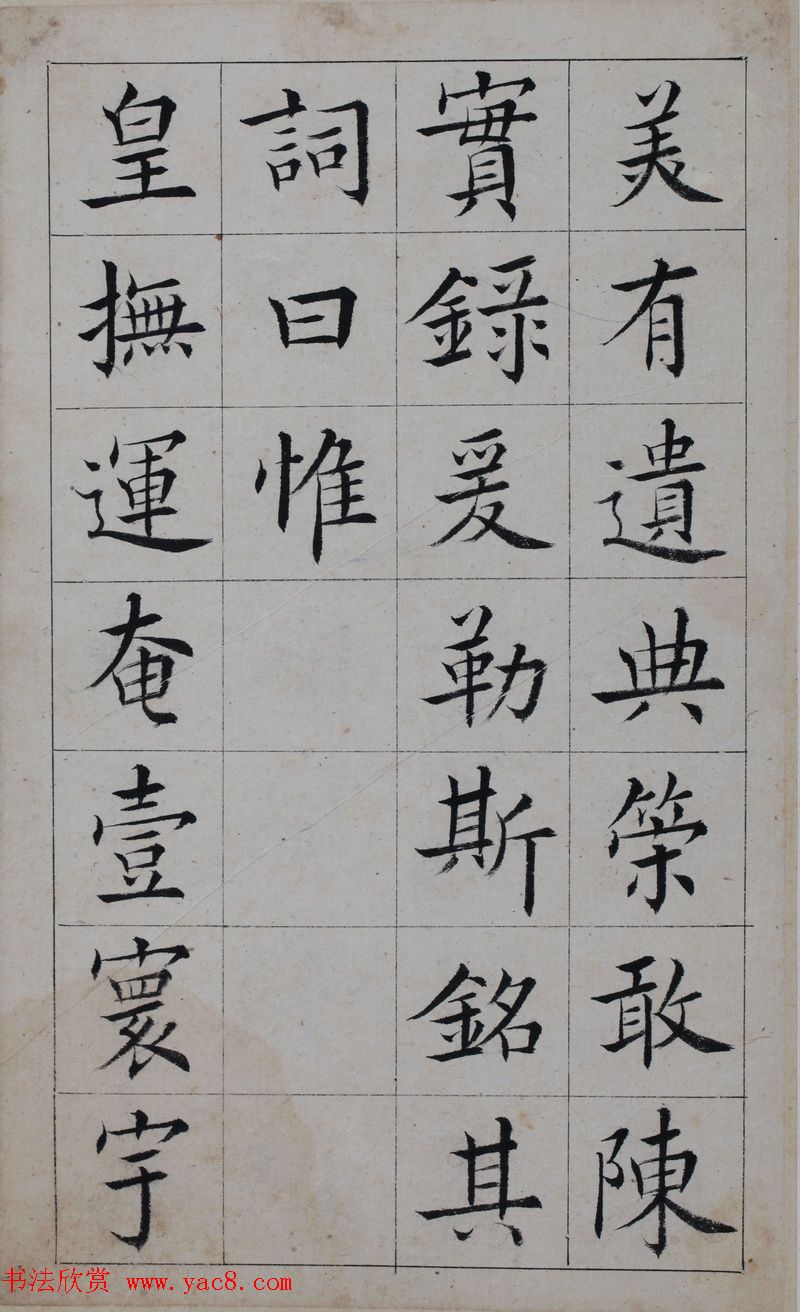 美有遺典策敢陳
實錄爰勒斯銘其
詞曰惟
皇撫運奄壹寰宇
书法欣赏 www.yac8.com